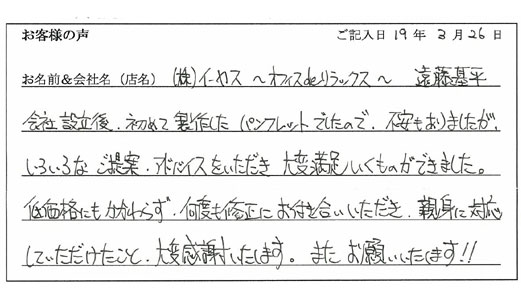 お客様の声 ご記入日 19 年 3 月 26 日
お名前&会社名(店名) (株)イーヤス ~オフィスdeリラックス~ 遠藤基平
会社設立後、初めて製作したパンフレットでしたので、不安もありましたが、
いろいろなご提案・アドバイスをいただき大変満足いくものができました。
低価格にもかかわらず、何度も修正にお付き合いいただき、親身に対応
していただけたこと、大変感謝いたします。またお願いいたします!!